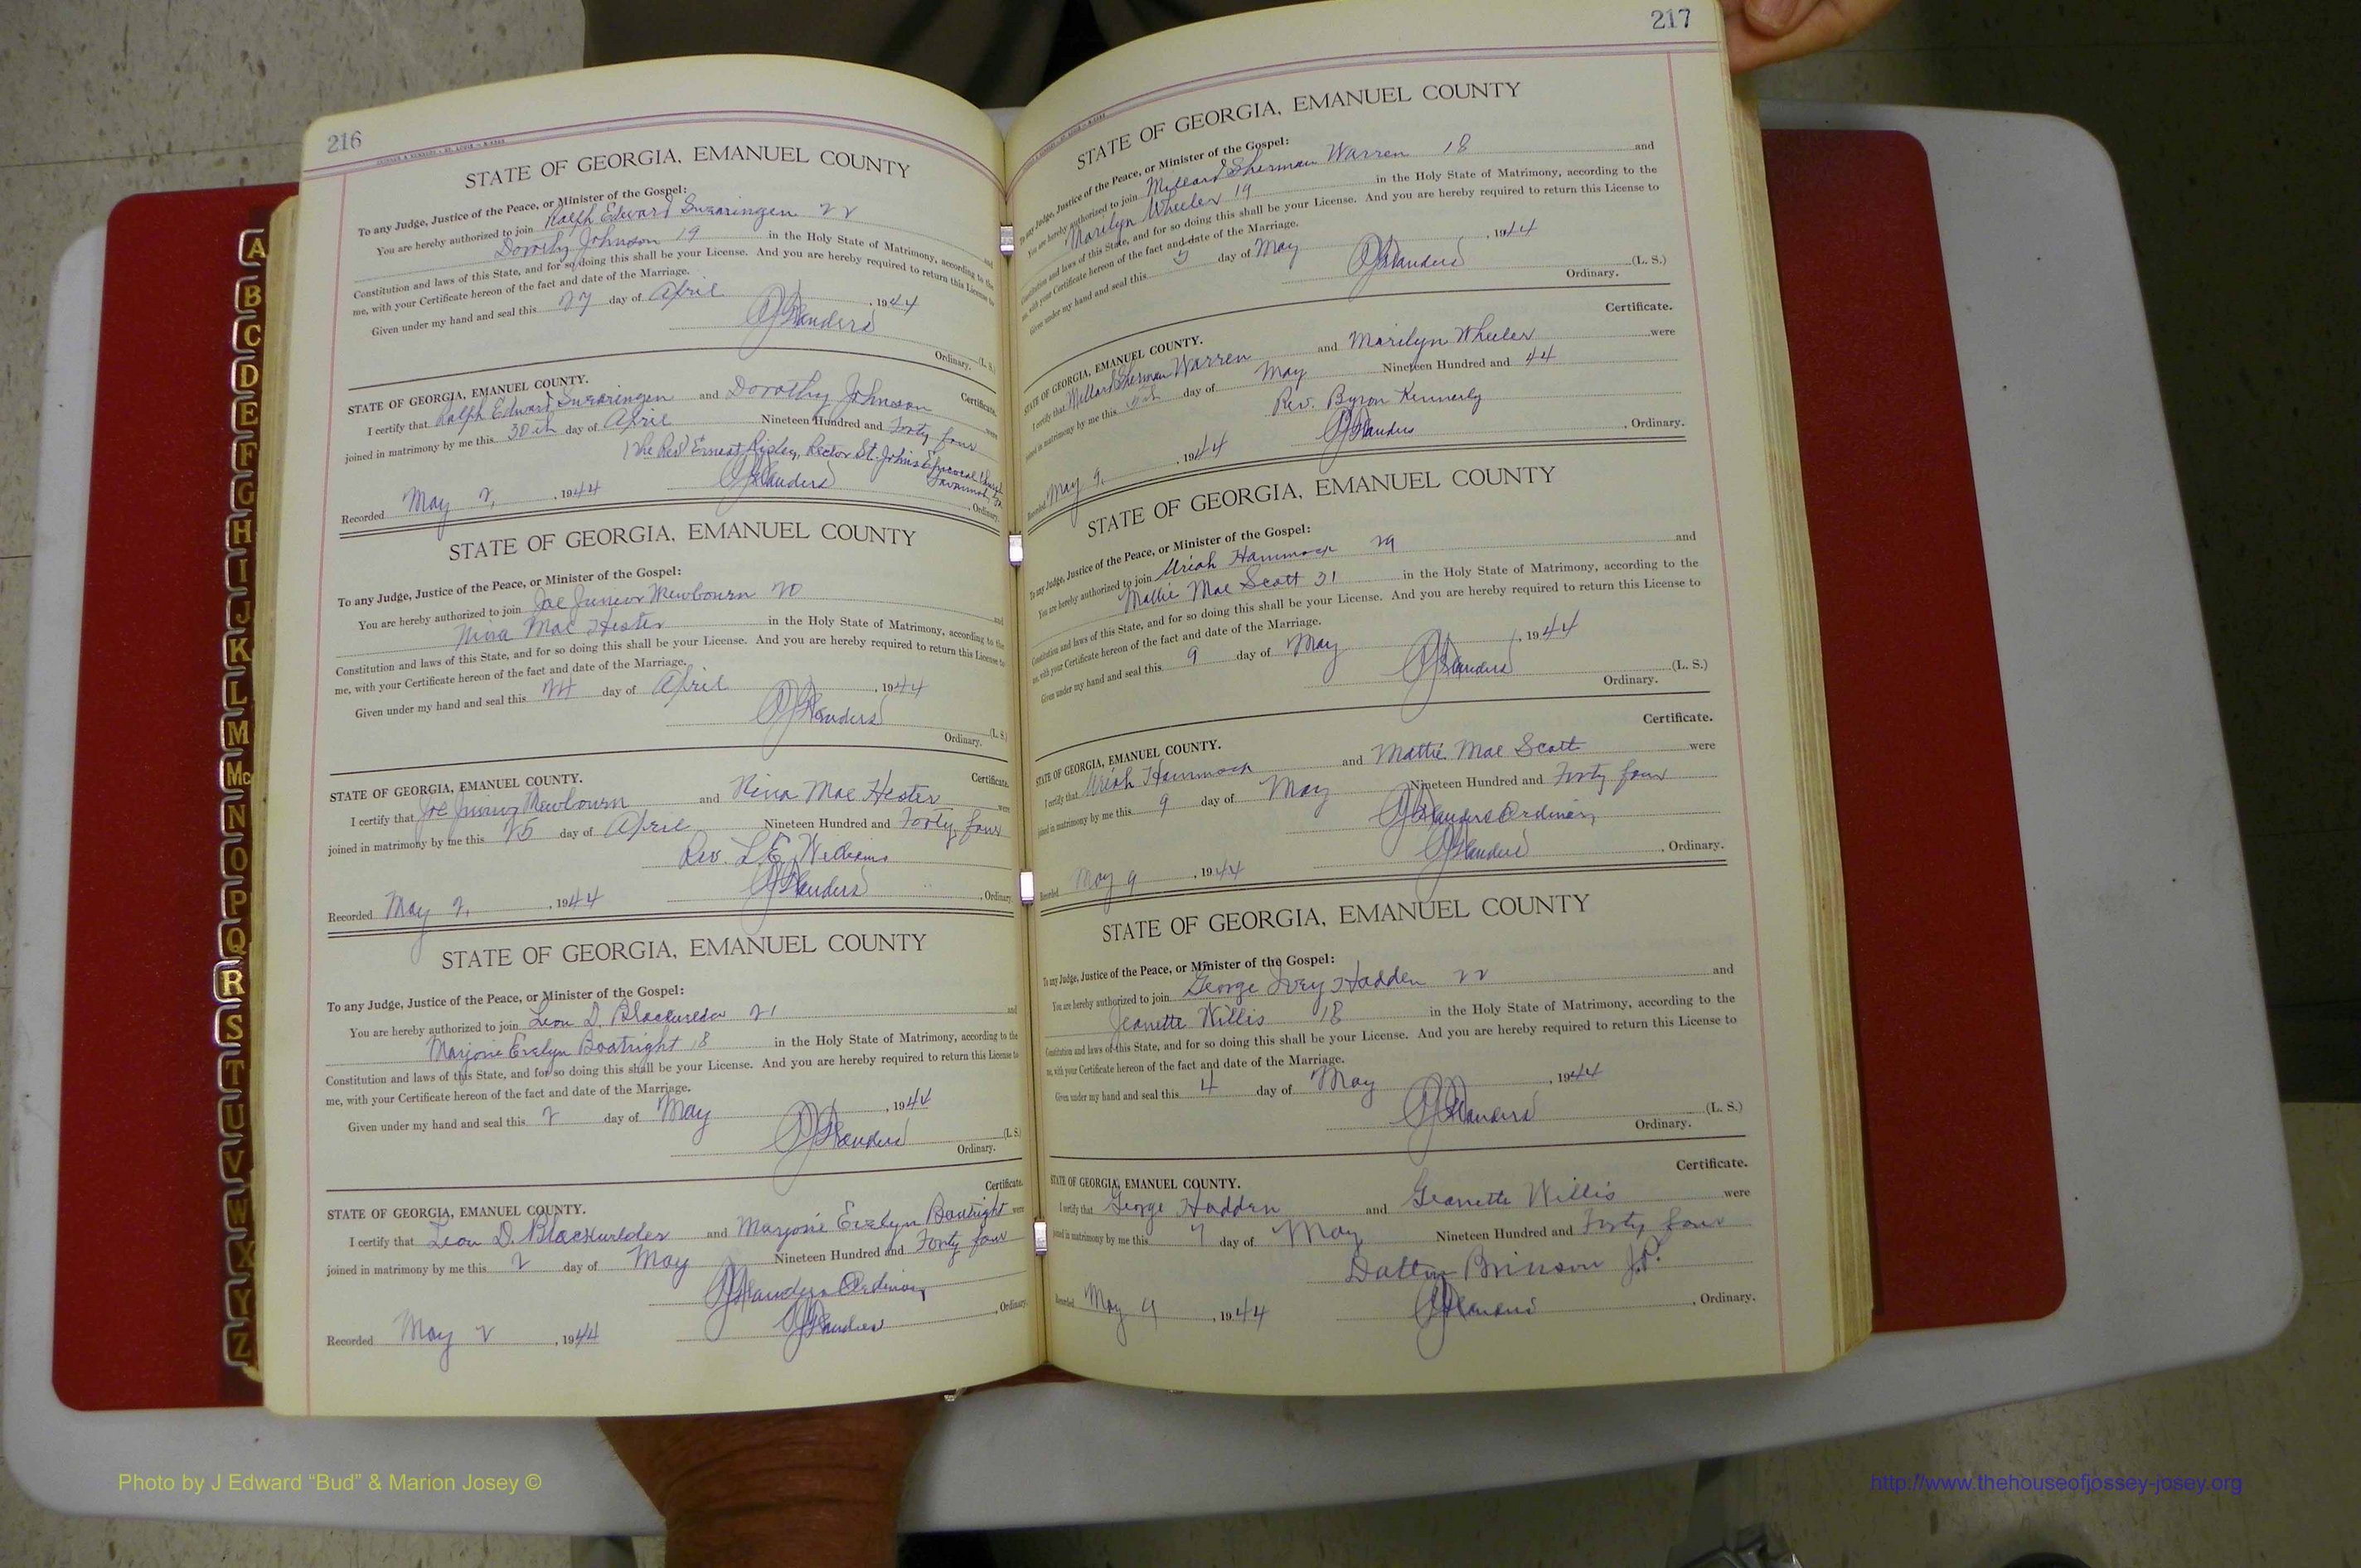 216
STATE OF GEORGIA, EMANUEL COUNTY
To any Judge, Justice of the Peace, or Minister of the Gospel:
You are hereby authorized to join Ralph Edward Swearingen 22 and
Dorothy Johnson 19 in the Holy State of Matrimony, according to the
Constitution and laws of this State, and for so doing this shall be your License. And you are hereby required to return this License to
me, with your Certificate hereon of the fact and date of the Marriage.
Given under my hand and seal this 27 day of April, 1944
(L. S.)
Ordinary.
Certificate.
STATE OF GEORGIA, EMANUEL COUNTY.
I certify that Ralph Edward Swearingen and Dorothy Johnson were
joined in matrimony by me this 30th day of April Nineteen Hundred and Forty four
(The Rev) Ernest Risley, Rector St. Johns Episcocal Church
Savannah, Ga
Recorded May 2, 1944 , Ordinary.
STATE OF GEORGIA, EMANUEL COUNTY
To any Judge, Justice of the Peace, or Minister of the Gospel:
You are hereby authorized to join Joe Junior Mewbourn 20 and
Nina Mae Hester in the Holy State of Matrimony, according to the
Constitution and laws of this State, and for so doing this shall be your License. And you are hereby required to return this License to
me, with your Certificate hereon of the fact and date of the Marriage.
Given under my hand and seal this 24 day of April, 1944
(L. S.)
Ordinary.
Certificate.
STATE OF GEORGIA, EMANUEL COUNTY.
I certify that Joe Junior Mewbourn and Nina Mae Hester were
joined in matrimony by me this 25 day of April Nineteen Hundred and Forty four
Rev. L.E. Williams
Recorded May 2, 1944 , Ordinary.
STATE OF GEORGIA, EMANUEL COUNTY
To any Judge, Justice of the Peace, or Minister of the Gospel:
You are hereby authorized to join Leon D. Blackwelder 21 and
Marjorie Evelyn Boatright 18 in the Holy State of Matrimony, according to the
Constitution and laws of this State, and for so doing this shall be your License. And you are hereby required to return this License to
me, with your Certificate hereon of the fact and date of the Marriage.
Given under my hand and seal this 2 day of May, 1944
(L. S.)
Ordinary.
Certificate.
STATE OF GEORGIA, EMANUEL COUNTY.
I certify that Leon D. Blackwelder and Marjorie Evelyn Boatright were
joined in matrimony by me this 2 day of May Nineteen Hundred and Forty four
Ordinary
Recorded May 2, 1944 , Ordinary.
217
STATE OF GEORGIA, EMANUEL COUNTY
To any Judge, Justice of the Peace, or Minister of the Gospel:
You are hereby authorized to join Millard Sherman Warren 18 and
Marilyn Wheeler 19 in the Holy State of Matrimony, according to the
Constitution and laws of this State, and for so doing this shall be your License. And you are hereby required to return this License to
me, with your Certificate hereon of the fact and date of the Marriage.
Given under my hand and seal this day of May, 1944
(L. S.)
Ordinary.
Certificate.
STATE OF GEORGIA, EMANUEL COUNTY.
I certify that Millard Sherman Warren and Marilyn Wheeler were
joined in matrimony by me this day of May Nineteen Hundred and 44
Rev. Byron Kennerly
Recorded May 9, 1944 , Ordinary.
STATE OF GEORGIA, EMANUEL COUNTY
To any Judge, Justice of the Peace, or Minister of the Gospel:
You are hereby authorized to join Uriah Hammock 29 and
Mattie Mae Scott 31 in the Holy State of Matrimony, according to the
Constitution and laws of this State, and for so doing this shall be your License. And you are hereby required to return this License to
me, with your Certificate hereon of the fact and date of the Marriage.
Given under my hand and seal this 9 day of May, 1944
(L. S.)
Ordinary.
Certificate.
STATE OF GEORGIA, EMANUEL COUNTY.
I certify that Uriah Hammock and Mattie Mae Scott were
joined in matrimony by me this 9 day of May Nineteen Hundred and Forty four
Ordinary
Recorded May 9, 1944 , Ordinary.
STATE OF GEORGIA, EMANUEL COUNTY
To any Judge, Justice of the Peace, or Minister of the Gospel:
You are hereby authorized to join George Ivey Hadden 22 and
Jeanette Willis 18 in the Holy State of Matrimony, according to the
Constitution and laws of this State, and for so doing this shall be your License. And you are hereby required to return this License to
me, with your Certificate hereon of the fact and date of the Marriage.
Given under my hand and seal this 4 day of May, 1944
(L. S.)
Ordinary.
Certificate.
STATE OF GEORGIA, EMANUEL COUNTY.
I certify that George Hadden and Jeanette Willis were
joined in matrimony by me this 7 day of May Nineteen Hundred and Forty four
Dalton Brinson J.P.
Recorded May 9, 1944 , Ordinary.
A
B
C
D
E
F
G
H
I
J
K
L
M
Mc
N
O
P
Q
R
S
T
U
V
W
X
Y
Z
Photo by J Edward “Bud” & Marion Josey ©
http://www.thehouseofjossey-josey.org